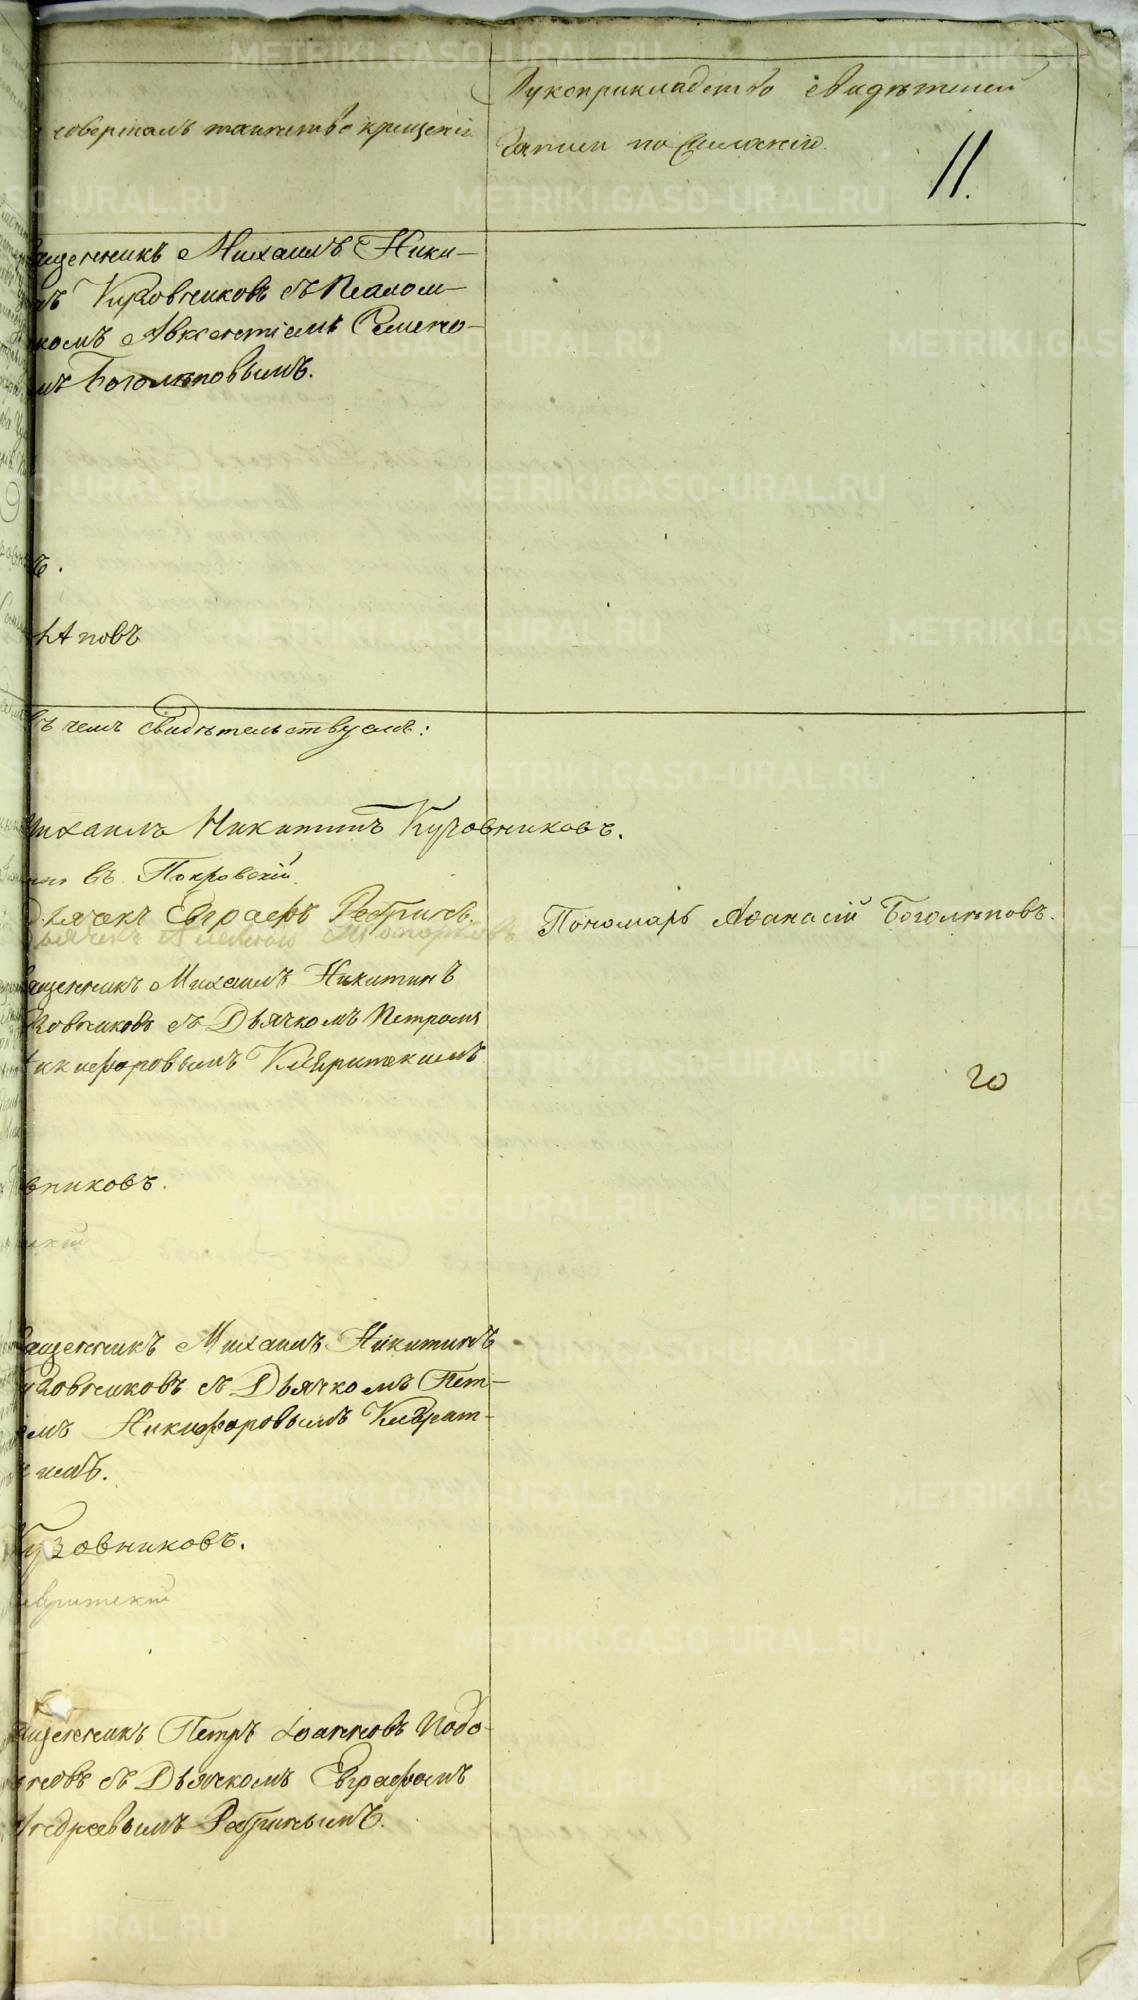 совершалъ таинство крещенія
Рукоприкладство свидѣтелей
записи по желанію.
11.
Священникъ Михаилъ Ники-
Кузовниковъ съ Псалом-
комъ Авксентіемъ Семено-
мъ Боголѣповымъ.
повъ
въ чемъ свидѣтельствуемъ:
Михаилъ Никитинъ Кузовниковъ.
въ Покровскій
Дьячекъ Евграфъ Ребринъ.
Дьячекъ
Пономарь Аѳанасій Боголѣповъ.
Священникъ Михаилъ Никитинъ
зовниковъ съ Дьячкомъ Петромъ
Никифоровымъ
20
вниковъ.
Священникъ Михаилъ Никитинъ
зовниковъ съ Дьячкомъ Пет-
омъ Никифоровымъ
Кузовниковъ.
Священникъ Петръ ІоанновъПодо-
съ Дьячкомъ Евграфомъ
Андреевымъ Ребринымъ.
METRIKI.GASO-URAL.RU